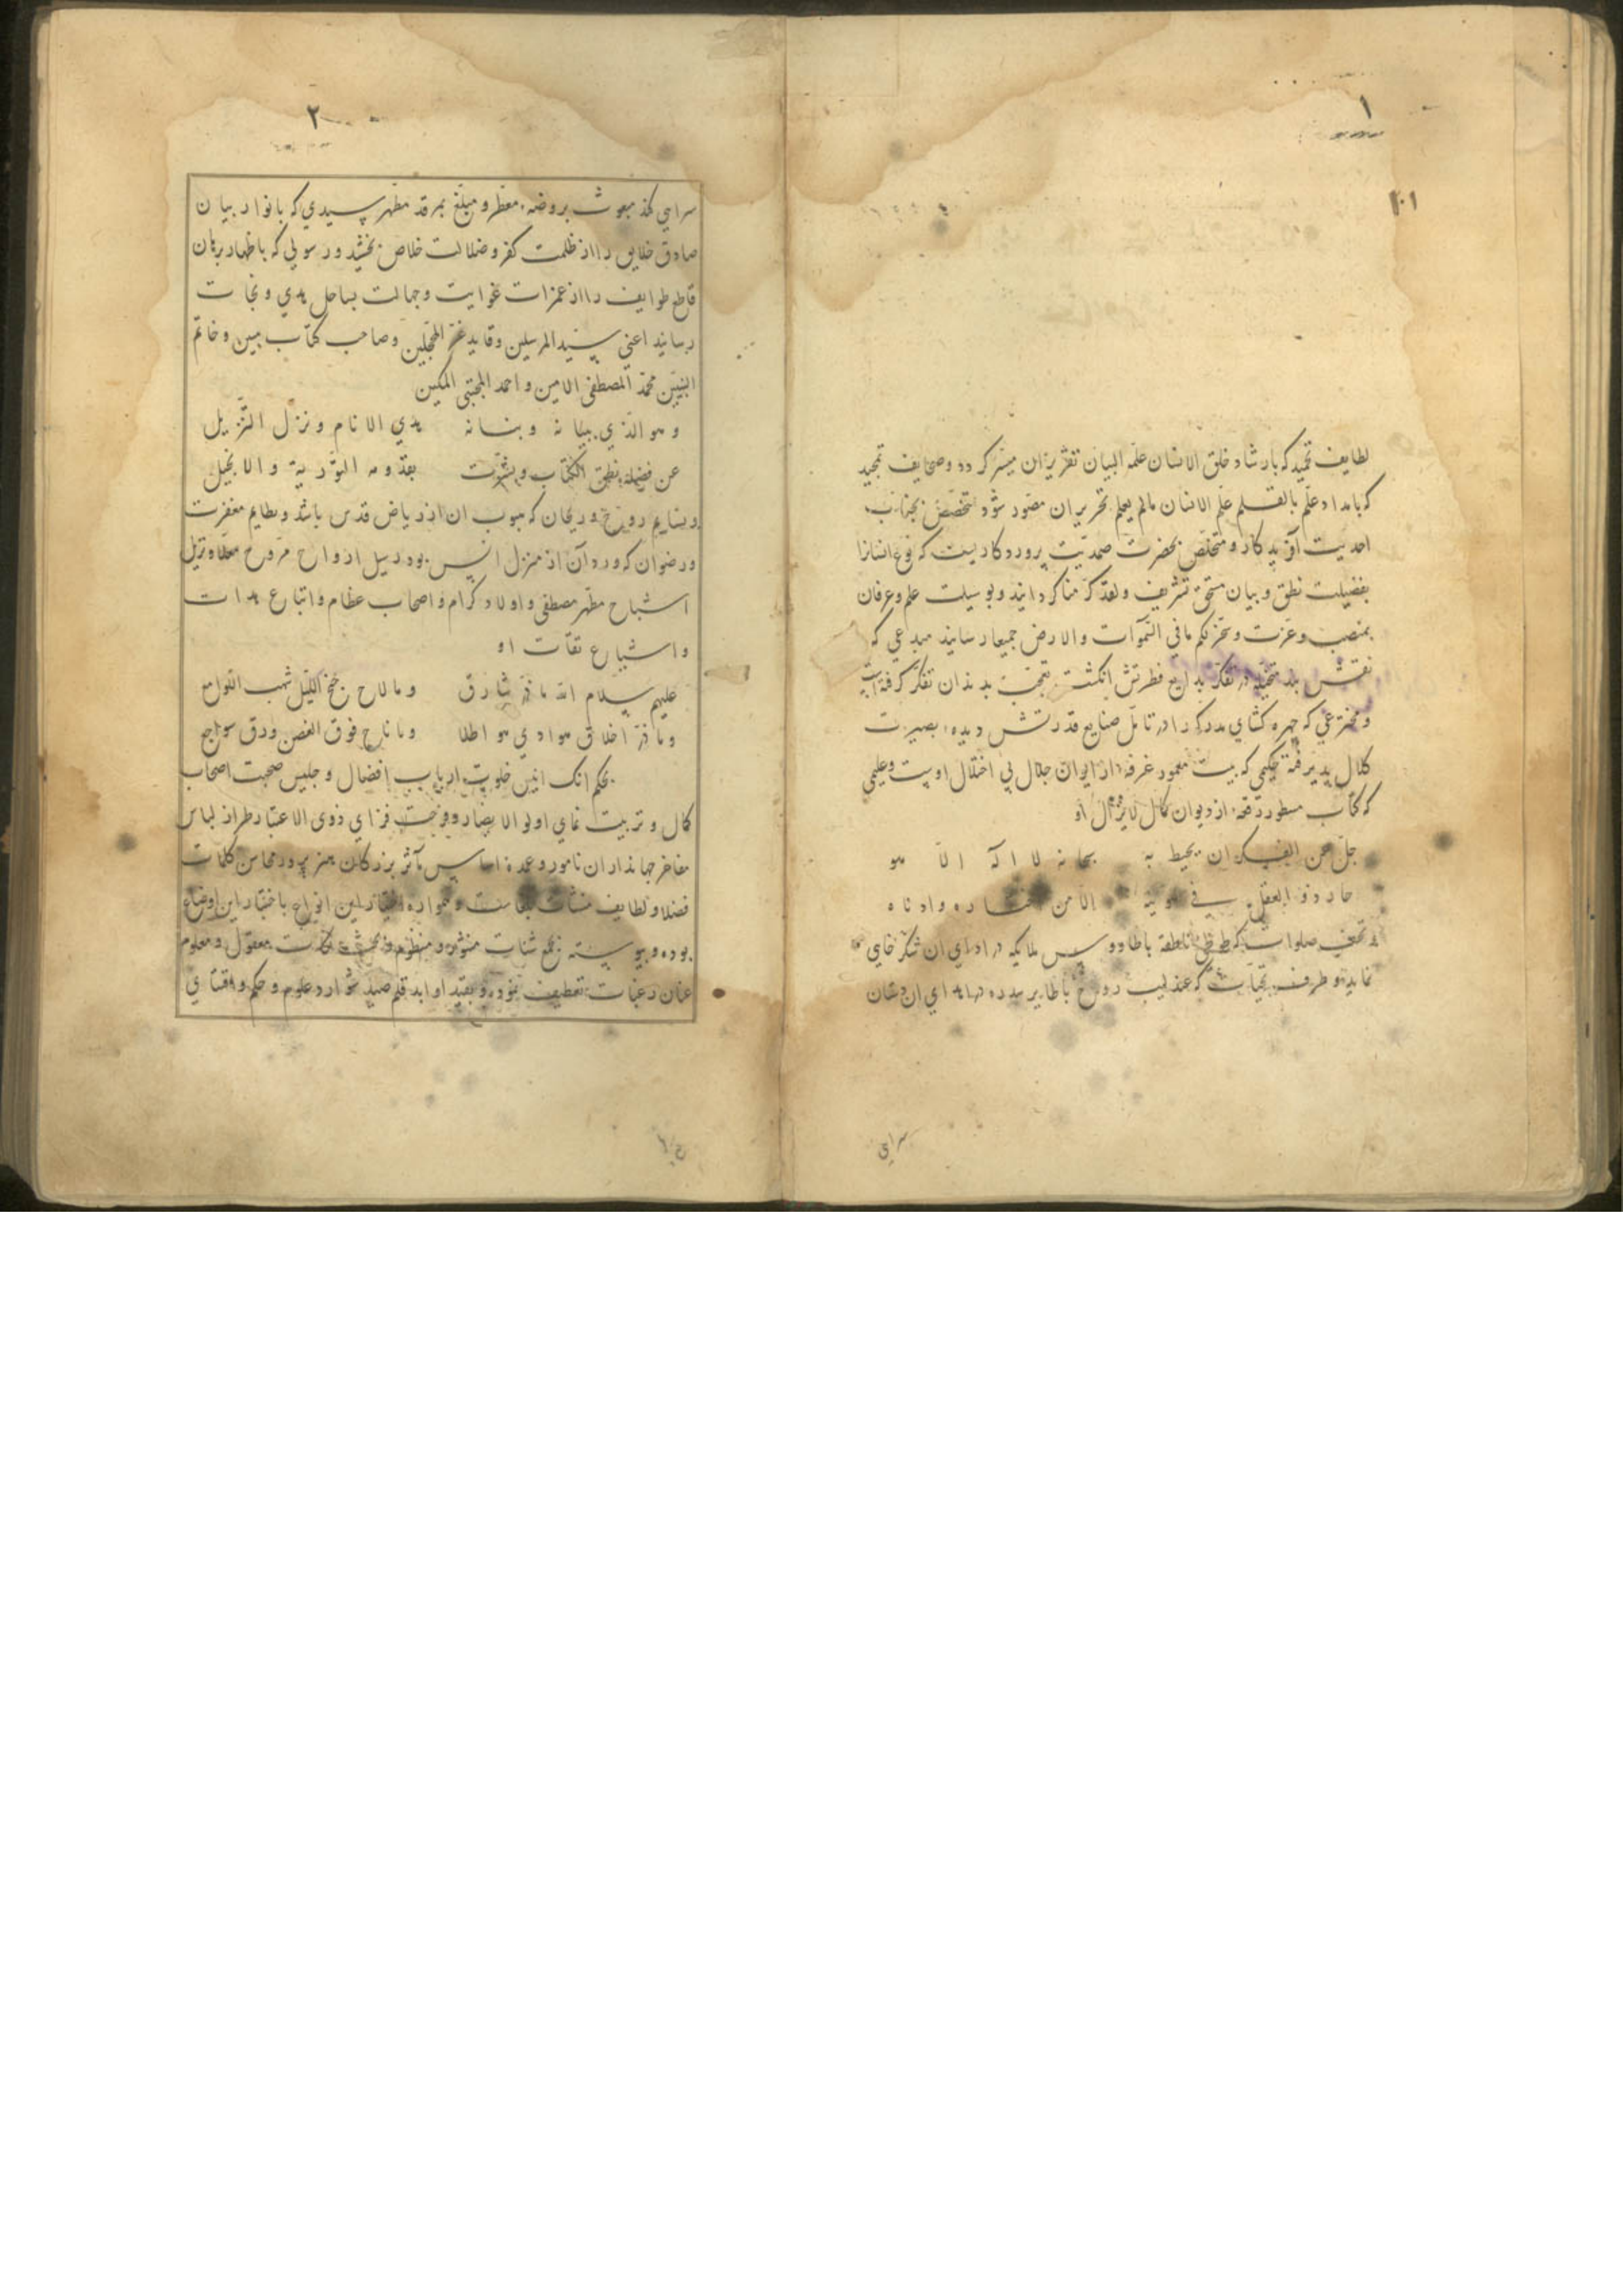 ۱
۱۰۱
لطایف تحمید که بارشاد خلق الانسان علمه البیان تقریر ان میسر کردد و صحایف تمجید
که بامداد علم بالقلم علم الانسان مالم یعلم تحریر ان مصور شود متخصص بجناب
احدیت آفریدکار و متخلص بحضرت صمدیت پروردکاریست که نوع انسانرا
بفضیلت نطق و بیان مستحق تشریف ولقد کرمنا کردانید و بوسیلت علم و عرفان
بمنصب و عزت وسخر لکم مافی السموات والارض جمیعا رسانید مبدعی که
نقش بند متخیله در تفکر بدایع فطرتش انکشت تعجب بدندان تفکر کرفته است
و مخترعی که چهره کشای مدرکه را در تامل صنایع قدرتش دیده بصیرت
کلال پذیرفته حکیمی که بیت معمور غرفه از ایوان جلال بی اختلال اوست و علیمی
که کتاب مسطور رقمه از دیوان کمال لایزال او
جل عن الفکر ان یحیط به سبحانه لا اله الا هو
حار ذوو العقل فی
تحف صلوات که طوطی ناطقه با طاووس ملایکه در ادای ان شکر خایی
نماید و طرف تحیات که عندلیب روح با طایر سدره در اهدای ان دستان
سرایی
۲
سرایی کند مبعوث بروضه معطر و مبلغ بمرقد مطهر سیدی که بانوار بیان
صادق خلایق را از ظلمت کفر و ضلالت خلاص بخشید و رسولی که باظهار برهان
قاطع طوایف را از غمرات غوایت و جهالت بساحل هدی و نجات
رسانید اعنی سید المرسلین و قاید غر المحجلین و صاحب کتاب مبین و خاتم
النبیین محمد المصطفی الامین و احمد المجتبی المکین
و هو الذی ببیانه و بنانه هدی الانام و نزل التنزیل
عن فضیلة نطق الکتاب و بشرت بقدومه التوریة والانجیل
و بنسایم روح و ریحان که هبوب ان از ریاض قدس باشد و بطایم مغفرت
و رضوان که ورود آن از منزل انس بود رسیل ارواح مروح معلا و نزیل
اشباح مطهر مصطفی و اولاد کرام و اصحاب عظام و اتباع هدات
و اشیاع ثقات او
علیهم سلام الله ما ذر شارق و ما لاح جنح اللیل شهب اللوامع
و ما ذر اخلاق هوادی هواطلا و ما ناح فوق الغصن ورق سواجع
بحکم انک انیس خلوت ارباب افضال و جلیس صحبت اصحاب
کمال و تربیت نمای اولوا الابصار و فرحت فزای ذوی الاعتبار طراز لباس
مفاخر جهانداران نامور و عمده اساس مآثر بزرکان هنرپرور محاسن کلمات
فضلا و لطایف منشآت بلغاست و همواره
بوده و پیوسته بجمع شتات منثور و منظوم و معقول و معلوم
عنان رغبات تعطیف نموده و بقید اوابد قلم صید شوارد علوم و حکم و اقتنای